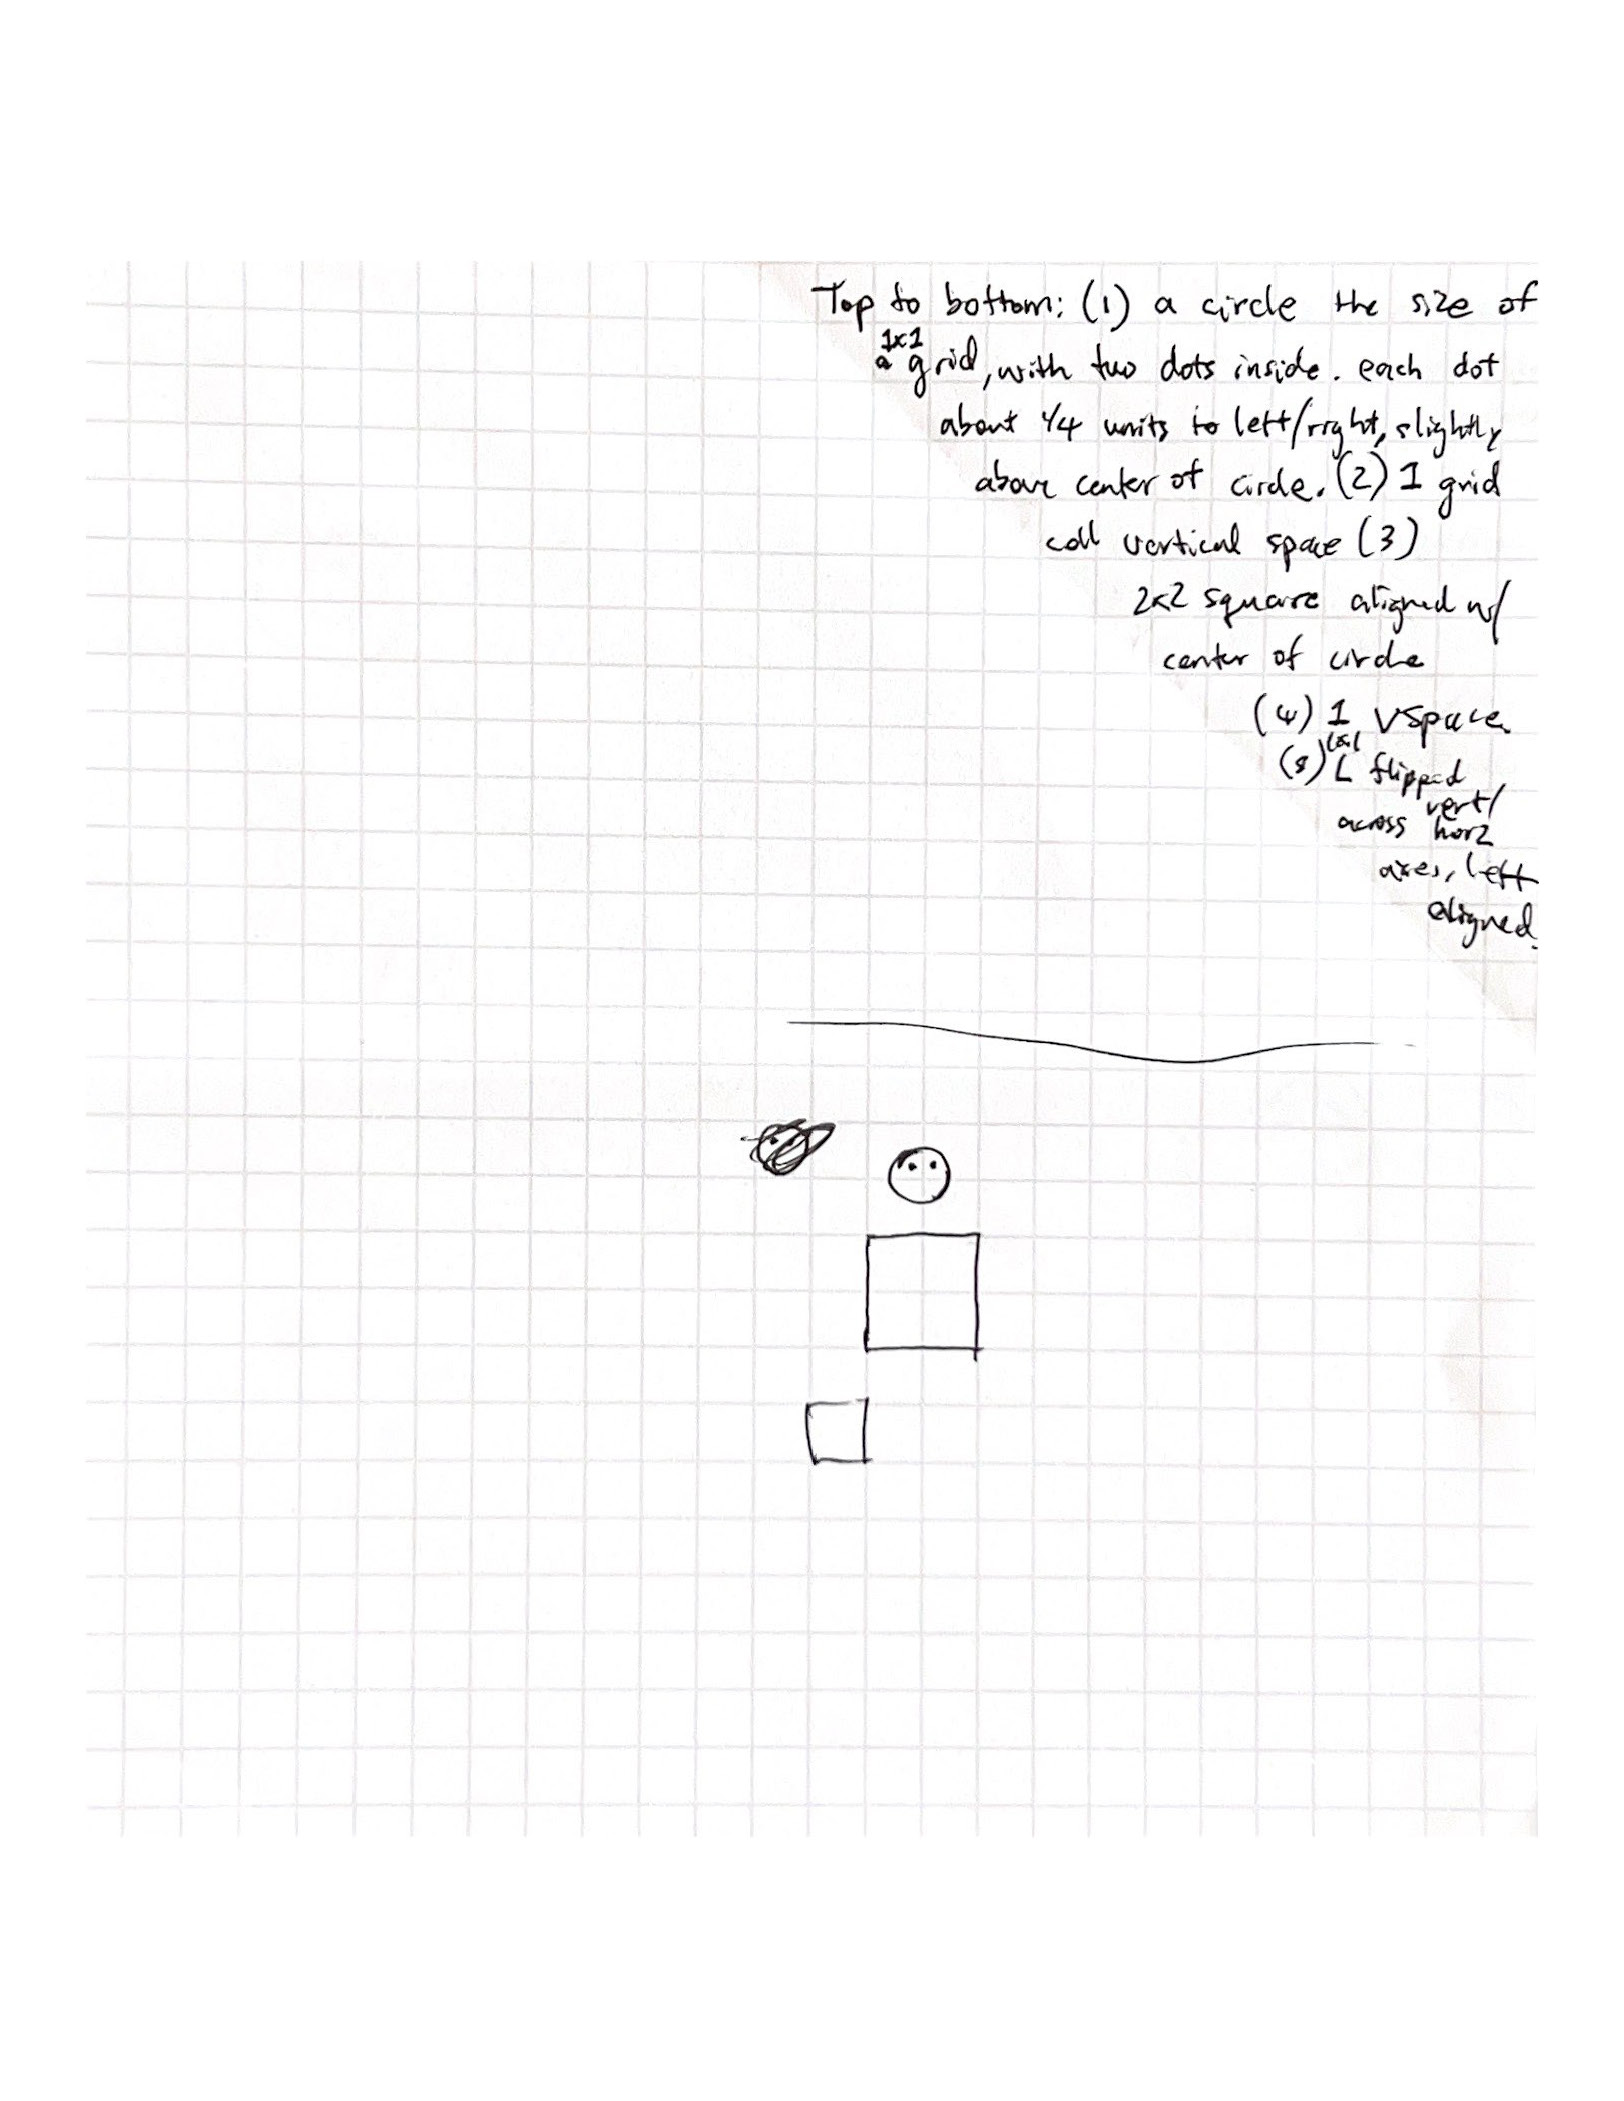 Top to bottom: (1) a circle the size of
a 1x1 grid, with two dots inside. each dot
about 1/4 units to left/right, slightly
above center of circle. (2) 1 grid
cell vertical space (3)
2x2 square aligned w/
center of circle
(4) 1 vspace
(5) L flipped
vert/
across horz
axes, left
aligned.